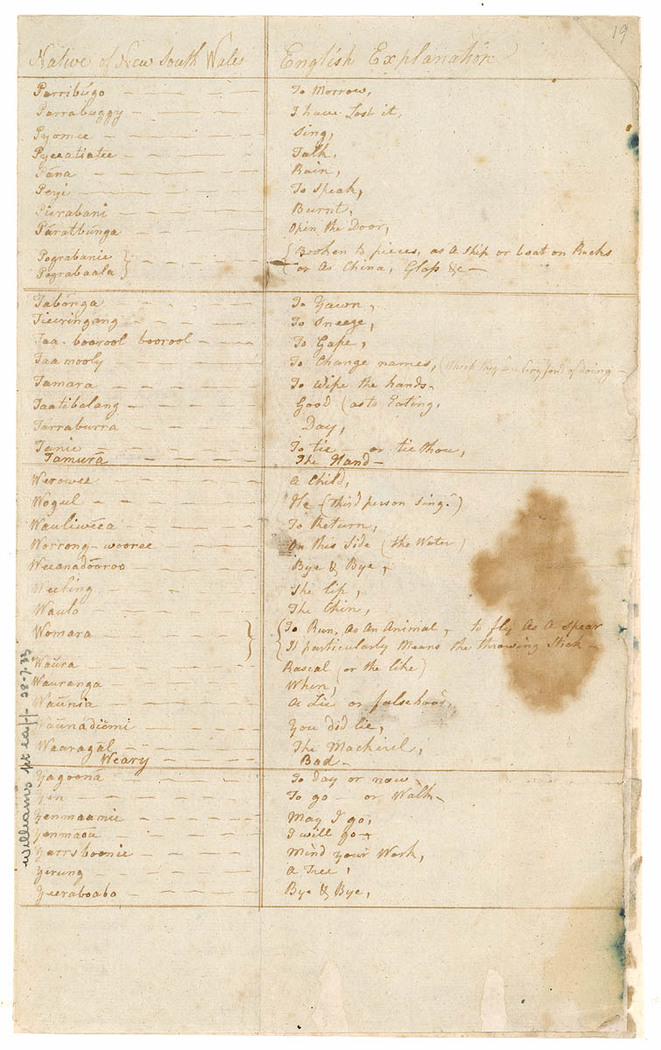 19
Native of New South Wales English Explanation
Parribúgo To Morrow,
Parrabuggy I have Lost it,
Pyomee Sing,
Pyeeatiatee Talk,
Pāna Rain,
Peyi To Speak,
Burnt,
Paratbúnga Open the Door,
Pograbanie Broken to pieces, as A Ship or boat on Rocks
Pograbaala or As China, Glass &c
Tabónga To Yawn,
Tieuringang To Sneeze,
Taa- boorool boorool To Gape,
Taa mooly To Change names, (which they are very fond of doing
Tamara To Wipe the hands
Taatibalang Good (as to Eating,
Tarraburra Day,
Tanie To tie or tie thou,
Tamurā The Hand
Werowee A Child,
Wogul He (third person Sing.r)
Wauliweea To Return,
Worrong-wooree On this Side (the Water)
Weeanadōoroo Bye & Bye,
Weeling The lip,
Waulo The Chin,
Womara To Run, As An Animal, to fly As A Spear
It particularly Means the throwing Stick
Waūra Rascal (or the like)
Wauranga When,
Waūnia A Lie or falsehood,
Waūnadiemi You did lie,
Waaragal The Mackerel,
Weary Bad
Yagoona To Day or now
Yen To go or Walk
Yenmaamie May I go,
Yenmaou I will go
Yarrsboonie Mind your Work,
Yerung A Tree,
Yeeraboabo Bye & Bye,
Williams pt
28.7.33